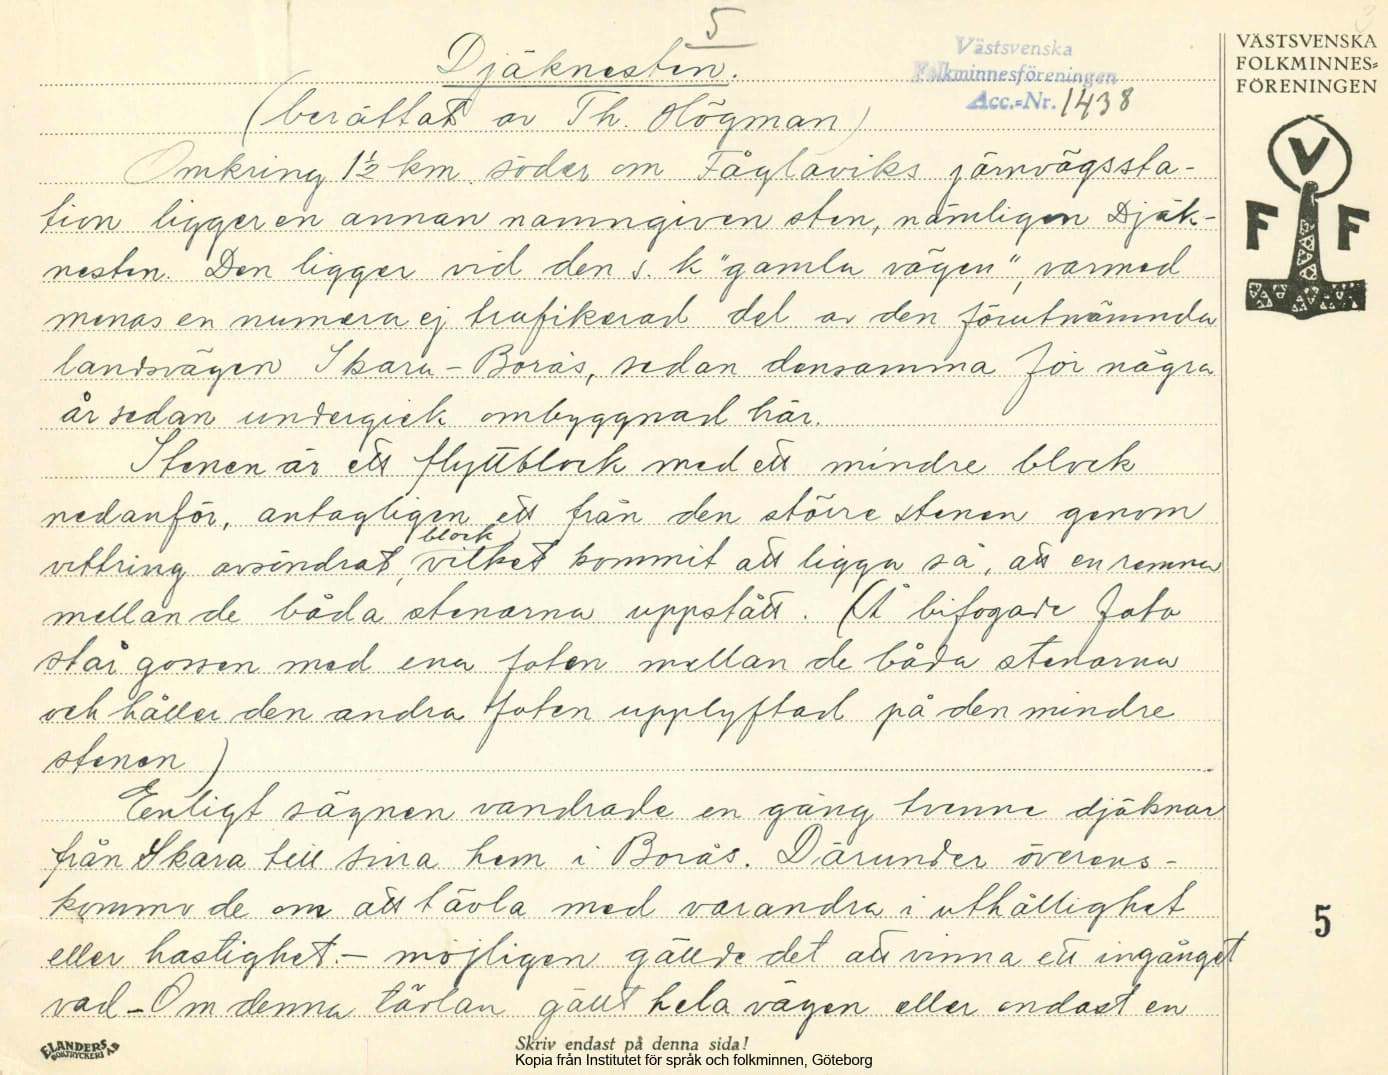 5
3
Djäknesten.
Västsvenska
Folkminnesföreningen
Acc.=Nr. 1438
VÄSTSVENSKA
FOLKMINNES=
FÖRENINGEN
V
F F
(berättat av Th. Högman)
Omkring 1½ km. söder om Fåglaviks järnvägssta-
tion ligger en annan namngiven sten, nämligen Djäk-
nesten. Den ligger vid den s. k "gamla vägen", varmed
menas en numera ej trafikerad del av den förutnämnda
landsvägen Skara - Borås, sedan densamma för några
år sedan undergick ombyggnad här.
Stenen är ett flyttblock med ett mindre block
nedanför, antagligen ett från den större stenen genom
block
vittring avsöndrat, vilket kommit att ligga så, att en remna
mellan de båda stenarna uppstått. (Å bifogade foto
står gossen med ena foten mellan de båda stenarna
och håller den andra foten upplyftad på den mindre
stenen)
Eenligt sägnen vandrade en gång tvenne djäknar
från Skara till sina hem i Borås. Därunder överens-
kommo de om att tävla med varandra i uthållighet
eller hastighet. - möjligen gällde det att vinna ett ingånget
vad - Om denna tävlan gällt hela vägen eller endast en
5
ELANDERS
BOKTRYCKERI AB
Skriv endast på denna sida!
Kopia från Institutet för språk och folkminnen, Göteborg